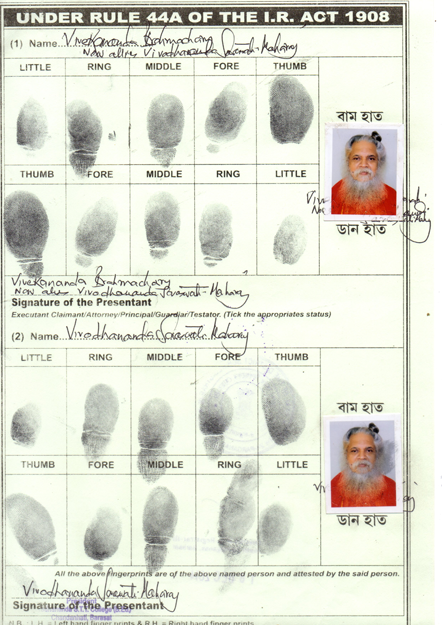 UNDER RULE 44A OF THE I.R. ACT 1908
(1) Name Vivekananda Brahmachary
Now alias Vivodhananda Saraswati Maharaj
LITTLE RING MIDDLE FORE THUMB
বাম হাত
THUMB FORE MIDDLE RING LITTLE
ডান হাত
Vivekananda Brahmachary
Now alias Vivodhananda Saraswati Maharaj
Signature of the Presentant
Executant Claimant/Attorney/Principal/Guardiar/Testator. (Tick the appropriates status)
(2) Name Vivodhananda Saraswati Maharaj
LITTLE RING MIDDLE FORE THUMB
বাম হাত
THUMB FORE MIDDLE RING LITTLE
ডান হাত
All the above fingerprints are of the above named person and attested by the said person.
Vivodhananda Saraswati Maharaj
Signature of the Presentant
N.B. : L.H. = Left hand finger prints & R.H. = Right hand finger prints